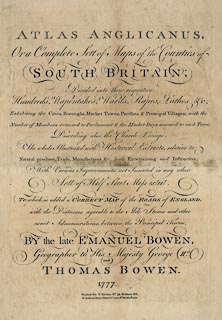 ATLAS ANGLICANUS,
Or a Complete Sett of Maps of the Counties of
SOUTH BRITAIN;
Divided into their respective
Hundreds, Wapentakes, Wards, Rapes, Lathes, &c.
Exhibiting the Cities, Boroughs, Market Towns, Parishes, & Principal Villages; with the
Number of Members returned to Parliament & the Market Days annexed to each Town;
Describing also the Church Livings
The whole Illustrated with Historical Extracts, relative to
Natural produce, Trade, Manufactures &c. both Entertaining and Instructive;
With Various Improvements not Inserted in any other
Sett of Half Sheet Maps extant.
To which is added a CORRECT MAP of the ROADS of ENGLAND,
with the Distances agreeable to the Mile Stones and other
exact Admensurations, between the Principal Towns.
BY the late EMANUEL BOWEN,
Geographer to His Majesty George II
and
THOMAS BOWEN.
1777.